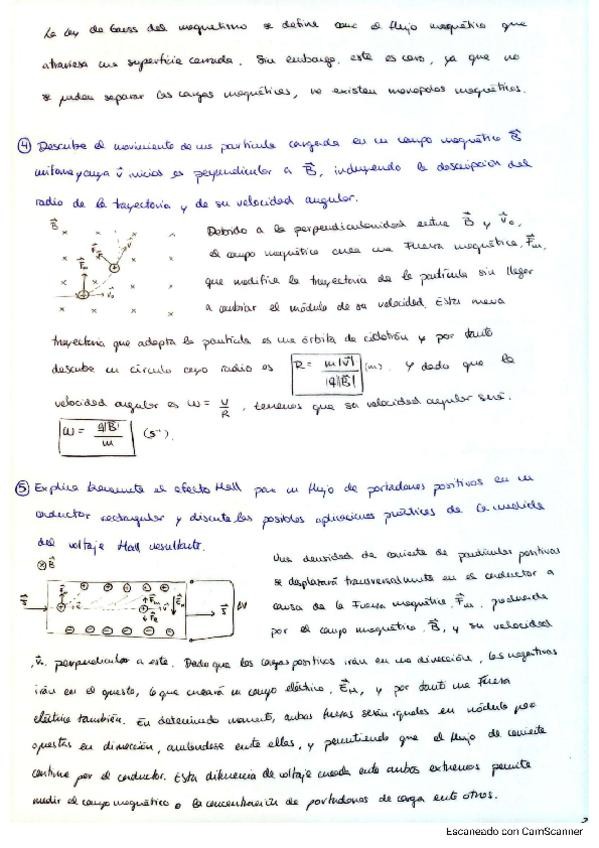 La ley de Gauss del magnetismo se define como el flujo magnético que
atraviesa una superficie cerrada. Sin embargo, este es cero, ya que no
se pueden separar las cargas magnéticas, no existen monopolos magnéticos.
4 Describe el movimiento de una partícula cargada en un campo magnético B⃗
uniforme y cuya v⃗ inicial es perpendicular a B⃗, incluyendo la descripción del
radio de la trayectoria y de su velocidad angular.
B⃗
F⃗m
v⃗
F⃗m
v⃗o
Debido a la perpendicularidad entre B⃗ y v⃗o,
el campo magnético crea una Fuerza magnética, F⃗m,
que modifica la trayectoria de la partícula sin llegar
a cambiar el módulo de su velocidad. Esta nueva
trayectoria que adopta la partícula es una órbita de ciclotrón y por tanto
describe un círculo cuyo radio es R = m|v⃗| / q|B⃗| (m). Y dado que la
velocidad angular es ω = v/R, tenemos que su velocidad angular será:
ω = q|B| / m (s⁻¹).
5 Explica brevemente el efecto Hall para un flujo de portadores positivos en un
conductor rectangular y discute las posibles aplicaciones prácticas de la medida
del voltaje Hall resultante.
⊗ B⃗
ΔV
Una densidad de corriente de partículas positivas
se desplazará transversalmente en el conductor a
causa de la Fuerza magnética, F⃗m, producida
por el campo magnético, B⃗, y su velocidad
, v⃗, perpendicular a este. Dado que las cargas positivas irán en una dirección, las negativas
irán en el opuesto, lo que creará un campo eléctrico, E⃗H, y por tanto una Fuerza
eléctrica también. En determinado momento, ambas fuerzas serán iguales en módulo pero
opuestas en dirección, anulándose entre ellas, y permitiendo que el flujo de corriente
continúe por el conductor. Esta diferencia de voltaje creada entre ambos extremos permite
medir el campo magnético o la concentración de portadores de carga entre otros.
2
Escaneado con CamScanner